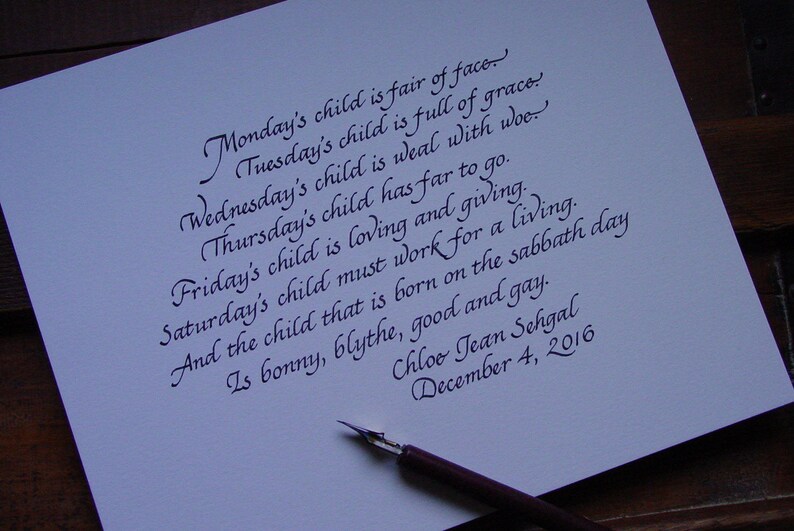 Monday's child is fair of face.
Tuesday's child is full of grace.
Wednesday's child is weal with woe.
Thursday's child has far to go.
Friday's child is loving and giving.
Saturday's child must work for a living.
And the child that is born on the sabbath day
Is bonny, blythe, good and gay.
Chloe Jean Sehgal
December 4, 2016